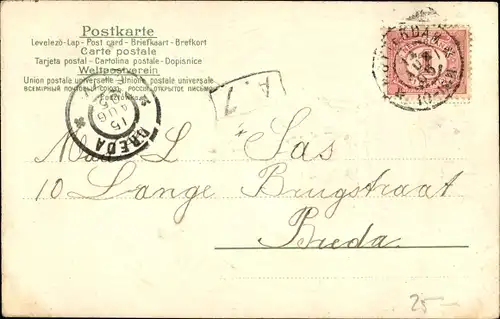 Postkarte
Levelező-Lap - Post card - Briefkaart - Brefkort
Carte postale
Tarjeta postal - Cartolina postale - Dopisnice
Weltpostverein
Union postale universelle Unione postale universale
ВСЕМІРНЫЙ ПОЧТОВЫЙ СОЮЗЪ. РОССІЯ. ОТКРЫТОЕ ПИСЬМО
15
BREDA
A
7
L Sas
10 Lange Brugstraat
Breda.
25-